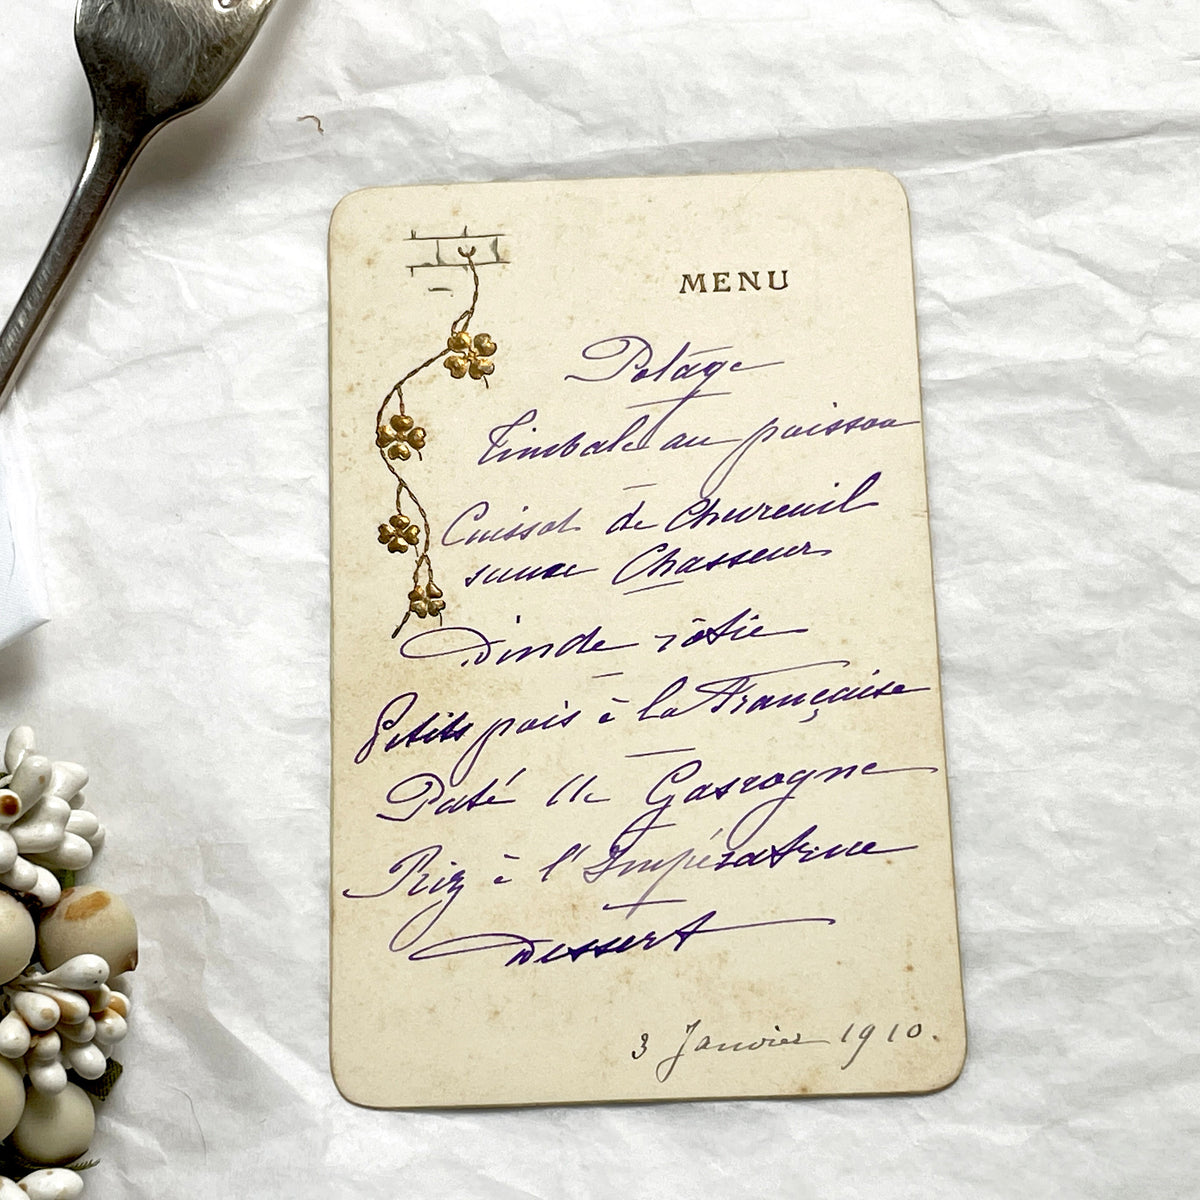 MENU
Potage
Timbale au poisson
Cuissot de Chevreuil
sauce Chasseur
Dinde rôtie
Petits pois à la Française
Paté de Gascogne
Riz à l'Impératrice
Dessert
3 Janvier 1910.